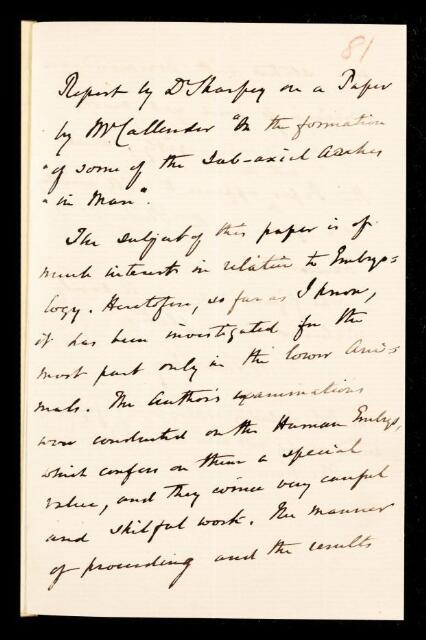 81
Report by Dr Sharpey on a Paper
by Mr Callender "On the formation
"of some of the Sub-axial Arches
"in Man".
The subject of this paper is of
much interest in relation to Embryo=
logy. Heretofore, so far as I know,
it has been investigated for the
most part only in the lower Ani=
mals. The Author's examinations
were conducted on the Human Embryo,
which confers on them a special
value, and they evince very careful
and skilful work. The manner
of proceeding and the results